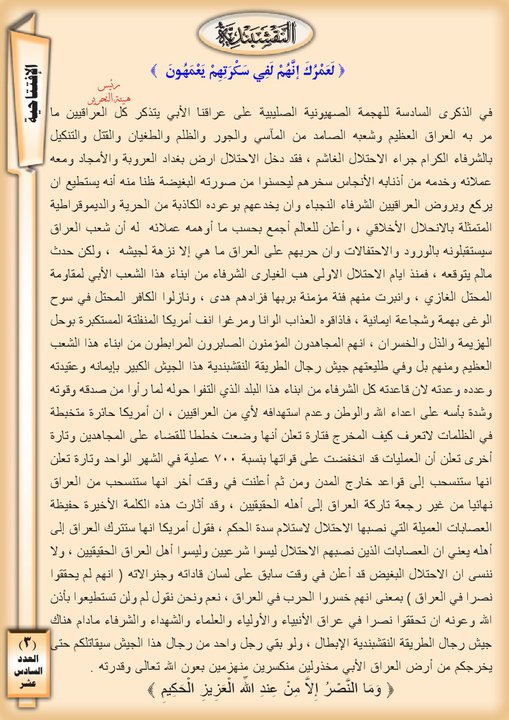 النقشبندية
الإفتتاحية
﴿ لَعَمْرُكَ إِنَّهُمْ لَفِي سَكْرَتِهِمْ يَعْمَهُونَ ﴾
رئيس
هيئة التحرير
في الذكرى السادسة للهجمة الصهيونية الصليبية على عراقنا الأبي يتذكر كل العراقيين ما
مر به العراق العظيم وشعبه الصامد من المآسي والجور والظلم والطغيان والقتل والتنكيل
بالشرفاء الكرام جراء الاحتلال الغاشم ، فقد دخل الاحتلال ارض بغداد العروبة والأمجاد ومعه
عملائه وخدمه من أذنابه الأنجاس سخرهم ليحسنوا من صورته البغيضة ظنا منه أنه يستطيع ان
يركع ويروض العراقيين الشرفاء النجباء وان يخدعهم بوعوده الكاذبة من الحرية والديموقراطية
المتمثلة بالانحلال الأخلاقي ، وأعلن للعالم أجمع بحسب ما أوهمه عملائه له أن شعب العراق
سيستقبلونه بالورود والاحتفالات وان حربهم على العراق ما هي إلا نزهة لجيشه ، ولكن حدث
مالم يتوقعه ، فمنذ ايام الاحتلال الاولى هب الغيارى الشرفاء من ابناء هذا الشعب الأبي لمقاومة
المحتل الغازي ، وانبرت منهم فئة مؤمنة بربها فزادهم هدى ، ونازلوا الكافر المحتل في سوح
الوغى بهمة وشجاعة ايمانية ، فاذاقوه العذاب الوانا ومرغوا انف أمريكا المنفلتة المستكبرة بوحل
الهزيمة والذل والخسران ، انهم المجاهدون المؤمنون الصابرون المرابطون من ابناء هذا الشعب
العظيم ومنهم بل وفي طليعتهم جيش رجال الطريقة النقشبندية هذا الجيش الكبير بإيمانه وعقيدته
وعدده وعدته لان قاعدته كل الشرفاء من ابناء هذا البلد الذي التفوا حوله لما رأوا من صدقه وقوته
وشدة بأسه على اعداء الله والوطن وعدم استهدافه لأي من العراقيين ، ان أمريكا حائرة متخبطة
في الظلمات لاتعرف كيف المخرج فتارة تعلن أنها وضعت خططا للقضاء على المجاهدين وتارة
أخرى تعلن أن العمليات قد انخفضت على قواتها بنسبة ٧٠٠ عملية في الشهر الواحد وتارة تعلن
انها ستنسحب إلى قواعد خارج المدن ومن ثم أعلنت في وقت أخر انها ستنسحب من العراق
نهائيا من غير رجعة تاركة العراق إلى أهله الحقيقيين ، وقد أثارت هذه الكلمة الأخيرة حفيظة
العصابات العميلة التي نصبها الاحتلال لاستلام سدة الحكم ، فقول أمريكا انها ستترك العراق إلى
أهله يعني ان العصابات الذين نصبهم الاحتلال ليسوا شرعيين وليسوا أهل العراق الحقيقيين ، ولا
ننسى ان الاحتلال البغيض قد أعلن في وقت سابق على لسان قاداته وجنرالاته ( انهم لم يحققوا
نصرا في العراق ) بمعنى انهم خسروا الحرب في العراق ، نعم ونحن نقول لم ولن تستطيعوا بأذن
الله وعونه ان تحققوا نصرا في عراق الأنبياء والأولياء والعلماء والشهداء والشرفاء مادام هناك
جيش رجال الطريقة النقشبندية الإبطال ، ولو بقي رجل واحد من رجال هذا الجيش سيقاتلكم حتى
يخرجكم من أرض العراق الأبي مخذولين منكسرين منهزمين بعون الله تعالى وقدرته .
﴿ وَمَا النَّصْرُ إِلاَّ مِنْ عِندِ اللّهِ الْعَزِيزِ الْحَكِيمِ ﴾
(٣)
العدد
السادس
عشر